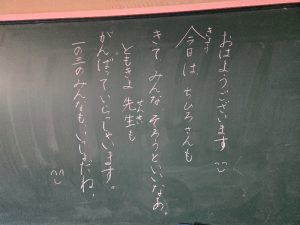 おはようございます
今日は、ちひろさんも
きて みんな そろうといいなあ。
ともきよ先生も
がんばっていらっしゃいます。
一の三のみんなも、いっしょだね。